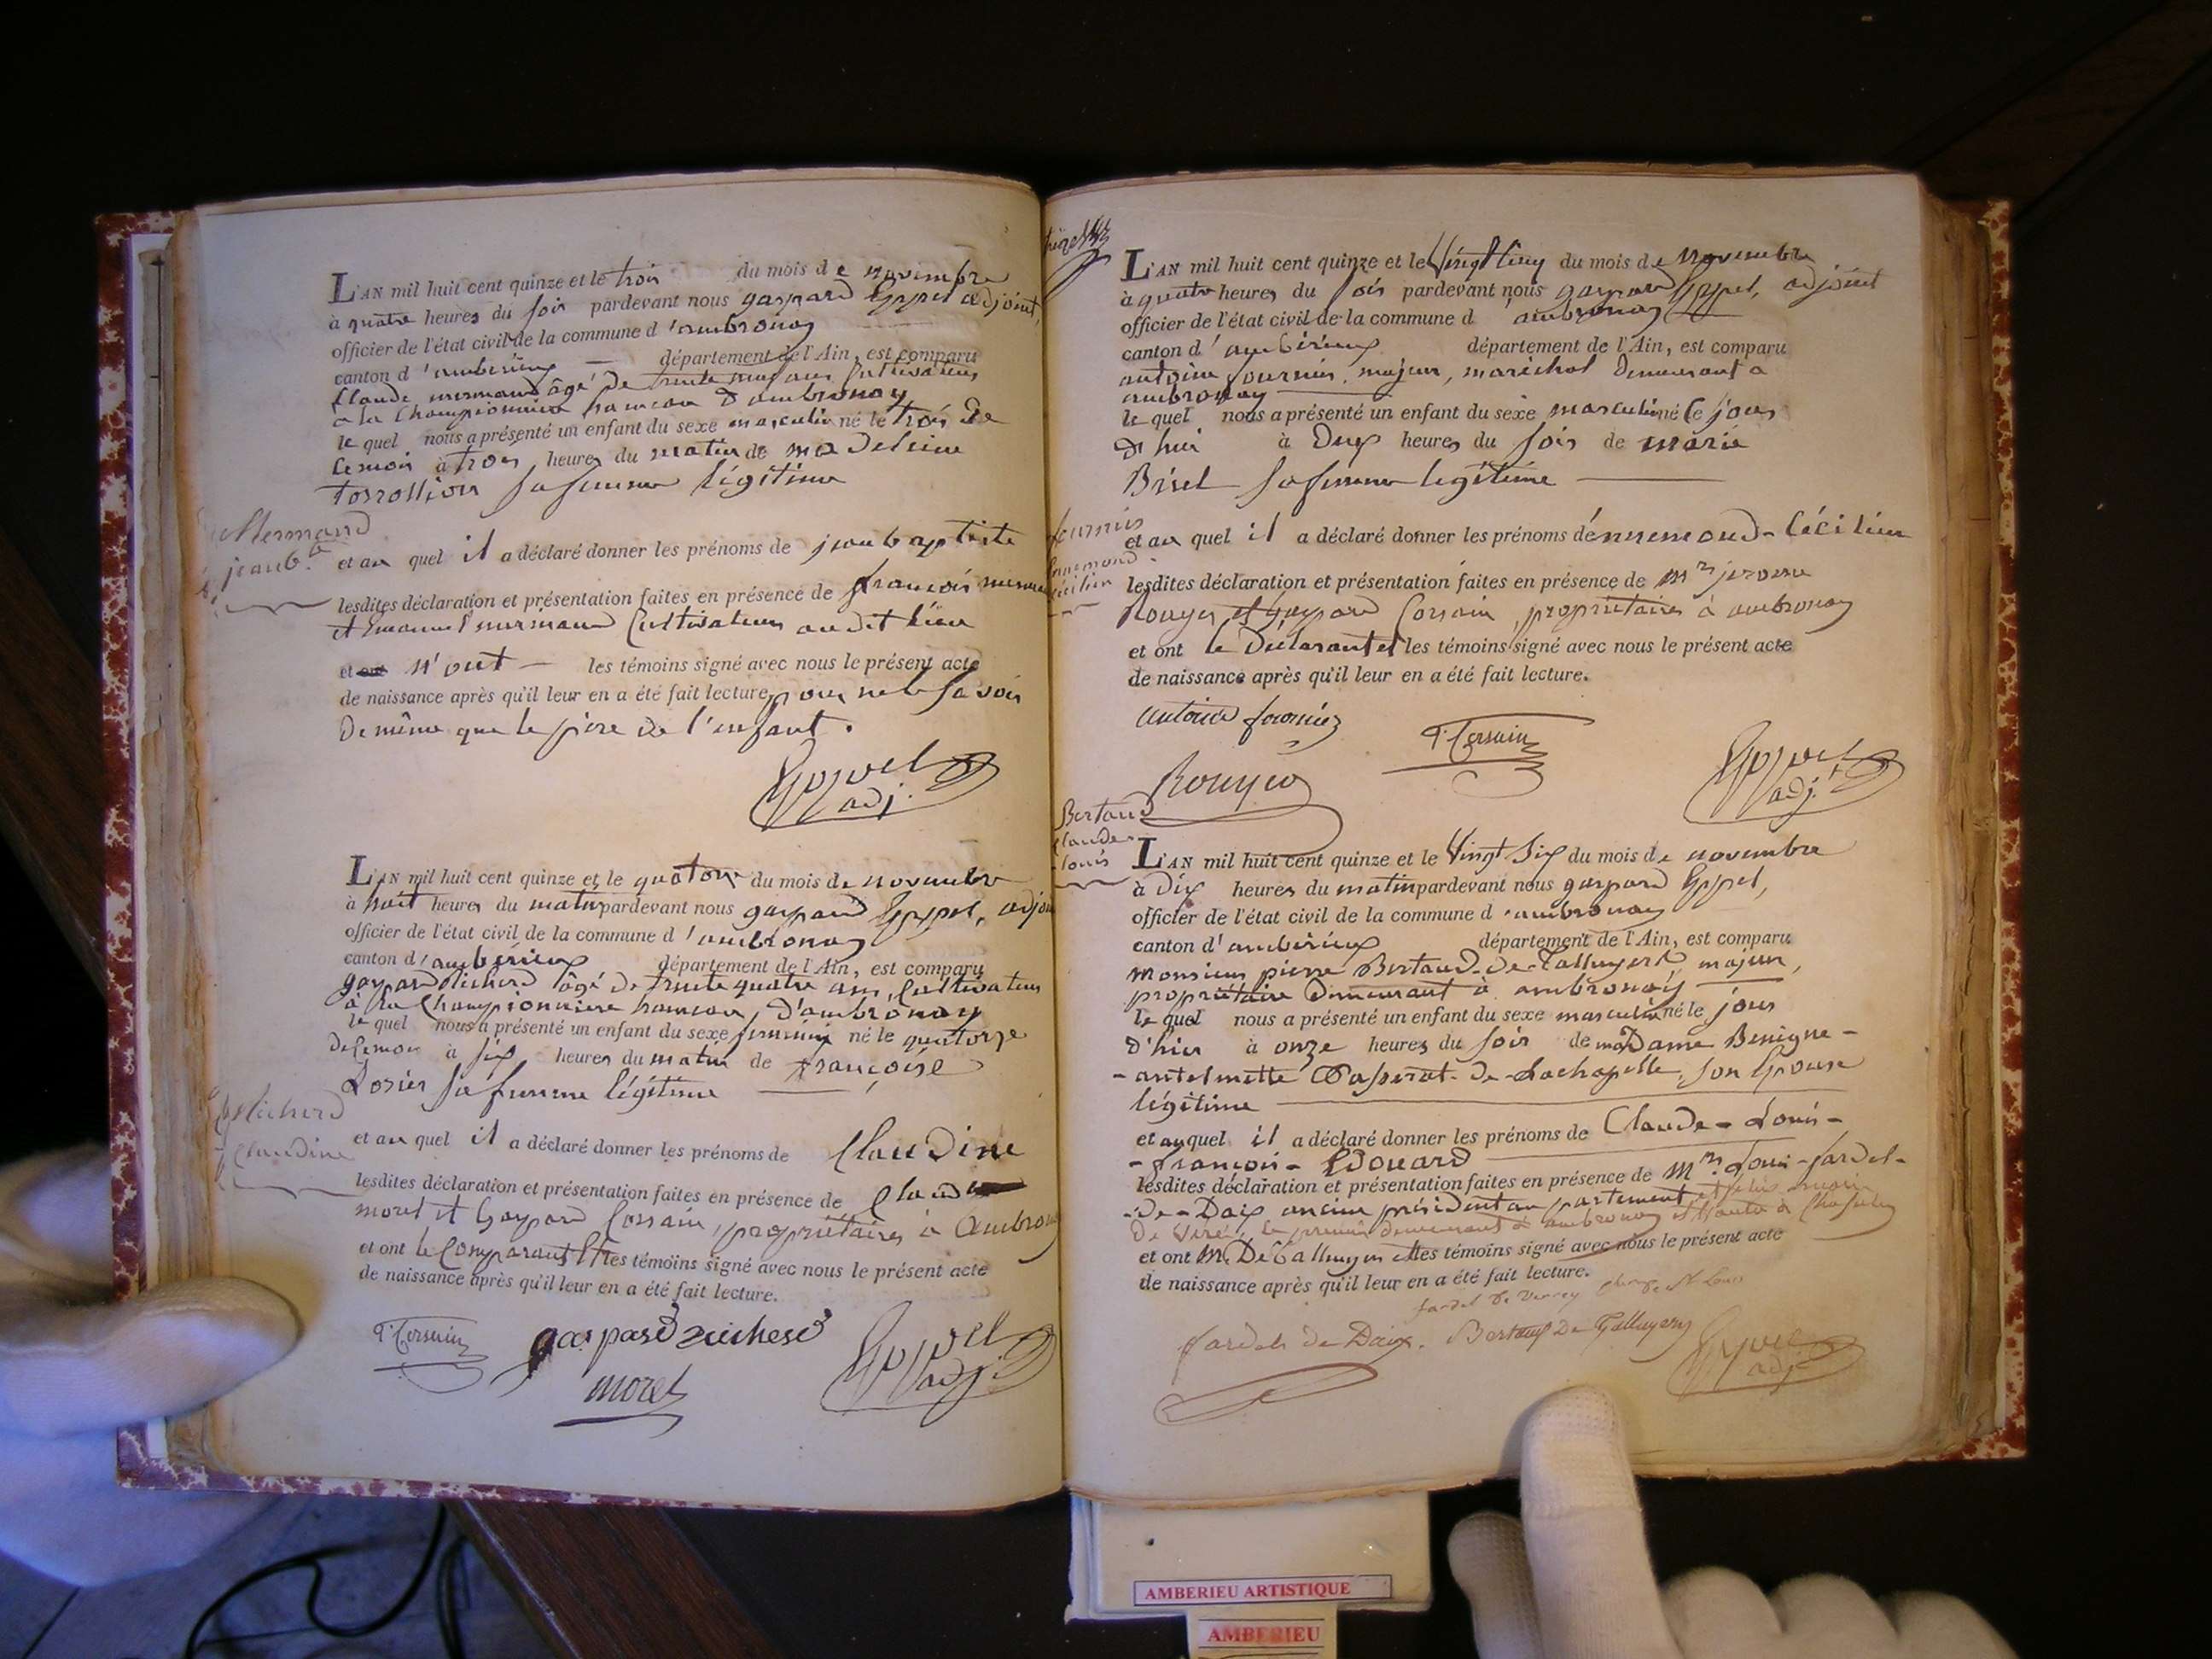 L'AN mil huit cent quinze et le trois du mois de novembre
à quatre heures du soir pardevant nous gaspard Gppel adjoint,
officier de l'état civil de la commune d'ambronay
canton d'ambérieux département de l'Ain, est comparu
Claude mermand âgé de trente ans Cultivateur
a la Championnière hameau d'ambronay
le quel nous a présenté un enfant du sexe masculin né le trois de
ce mois à trois heures du matin de madeleine
sa femme légitime
Mermand
jean b.te
et au quel il a déclaré donner les prénoms de jean baptiste
lesdites déclaration et présentation faites en présence de françois
et mermand Cultivateurs audit lieu
et ont n'ont les témoins signé avec nous le présent acte
de naissance après qu'il leur en a été fait lecture, pour ne le savoir
de même que le père de l'enfant.
adj.
L'AN mil huit cent quinze et le quatorze du mois de novembre
à huit heures du matin pardevant nous gaspard adjoint
officier de l'état civil de la commune d'ambronay
canton d'ambérieux département de l'Ain, est comparu
gaspard âgé de trente quatre ans, Cultivateur
à la Championnière hameau d'ambronay
le quel nous a présenté un enfant du sexe féminin né le quatorze
de ce mois à six heures du matin de françoise
Dosier sa femme légitime
Claudine
et au quel il a déclaré donner les prénoms de Claudine
lesdites déclaration et présentation faites en présence de Claude
moret et Gaspard Corsain, propriétaires à Ambronay
et ont le Comparant et les témoins signé avec nous le présent acte
de naissance après qu'il leur en a été fait lecture.
G. Corsain gaspard
moret
adj.
L'AN mil huit cent quinze et le Vingt Cinq du mois de novembre
à quatre heures du soir pardevant nous gaspard adjoint
officier de l'état civil de la commune d'ambronay
canton d'ambérieux département de l'Ain, est comparu
antoine fournier, majeur, maréchal demeurant a
ambronay
le quel nous a présenté un enfant du sexe masculin né ce jour
d'hui à Deux heures du soir de marie
Brisel sa femme légitime
fournier
Ennemond
Cécilien
et au quel il a déclaré donner les prénoms d'énnemond-Cécilien
lesdites déclaration et présentation faites en présence de mr. jerome
Rouyer et Gaspard Corsain, propriétaires à ambronay
et ont le Déclarant et les témoins signé avec nous le présent acte
de naissance après qu'il leur en a été fait lecture.
antoine fournier
G. Corsain
Rouyer
adj.t
Bertaud
Claude
Louis
L'AN mil huit cent quinze et le Vingt Six du mois de novembre
à dix heures du matin pardevant nous gaspard
officier de l'état civil de la commune d'ambronay
canton d'ambérieux département de l'Ain, est comparu
Monsieur pierre Bertaud-de- majeur,
propriétaire demeurant à ambronay
le quel nous a présenté un enfant du sexe masculin né le jour
d'hier à onze heures du soir de madame Benigne-
-antelmette Passerat-de-Lachapelle, son Epouse
légitime
et au quel il a déclaré donner les prénoms de Claude-Louis-
-françois-Edouard
lesdites déclaration et présentation faites en présence de Mr. Louis-fardel-
-de-Daix ancien président au parlement
le premier demeurant à ambronay
et ont M. De et les témoins signé avec nous le présent acte
de naissance après qu'il leur en a été fait lecture.
fardel de Daix.
adj.
AMBERIEU ARTISTIQUE
AMBERIEU